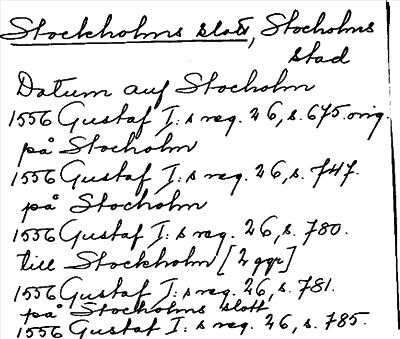 Stockholms slott, Stocholms
stad
Datum auf Stocholm
1556 Gustaf I:s reg. 26, s. 675. orig.
på Stocholm
1556 Gustaf I:s reg. 26, s. 747.
på Stocholm
1556 Gustaf I:s reg. 26, s. 780.
till Stockholm [2 ggr]
1556 Gustaf I:s reg. 26, s. 781.
på Stocholms slott
1556 Gustaf I:s reg. 26, s. 785.